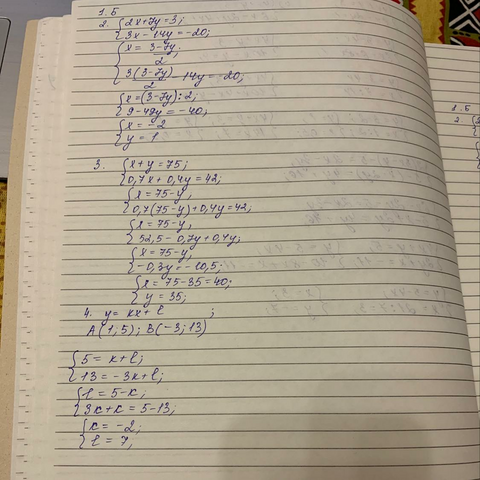 1. Б
2. {2x+7y=3;
{3x-14y=-20;
{x = 3-7y/2,
{3(3-7y)/2 - 14y = -20;
{x=(3-7y):2;
{9-49y=-40;
{x=-2
{y=1
3. {x+y=75;
{0,7x+0,4y=42;
{x=75-y,
{0,7(75-y)+0,4y=42,
{x=75-y,
{52,5-0,7y+0,4y;
{x=75-y;
{-0,3y=-10,5;
{x=75-35=40;
{y=35;
4. y=kx+l ;
A(1;5); B(-3;13)
{5=k+l;
{13=-3k+l;
{l=5-k,
{3k+k=5-13;
{k=-2;
{l=7,
1.5
2